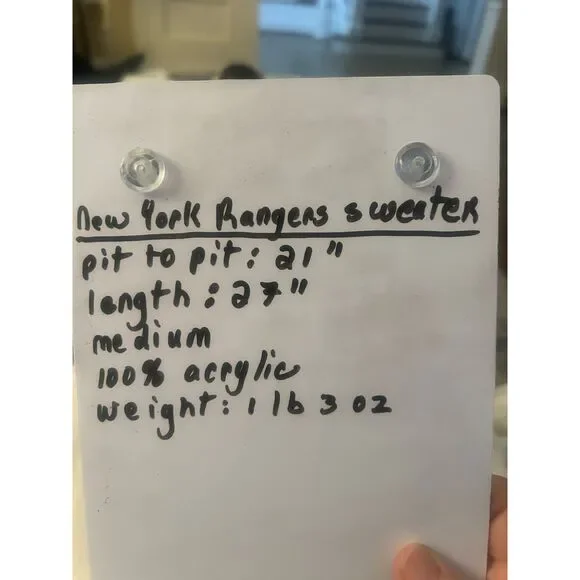 New York Rangers sweater
pit to pit: 21"
length: 27"
medium
100% acrylic
weight: 1 lb 3 oz